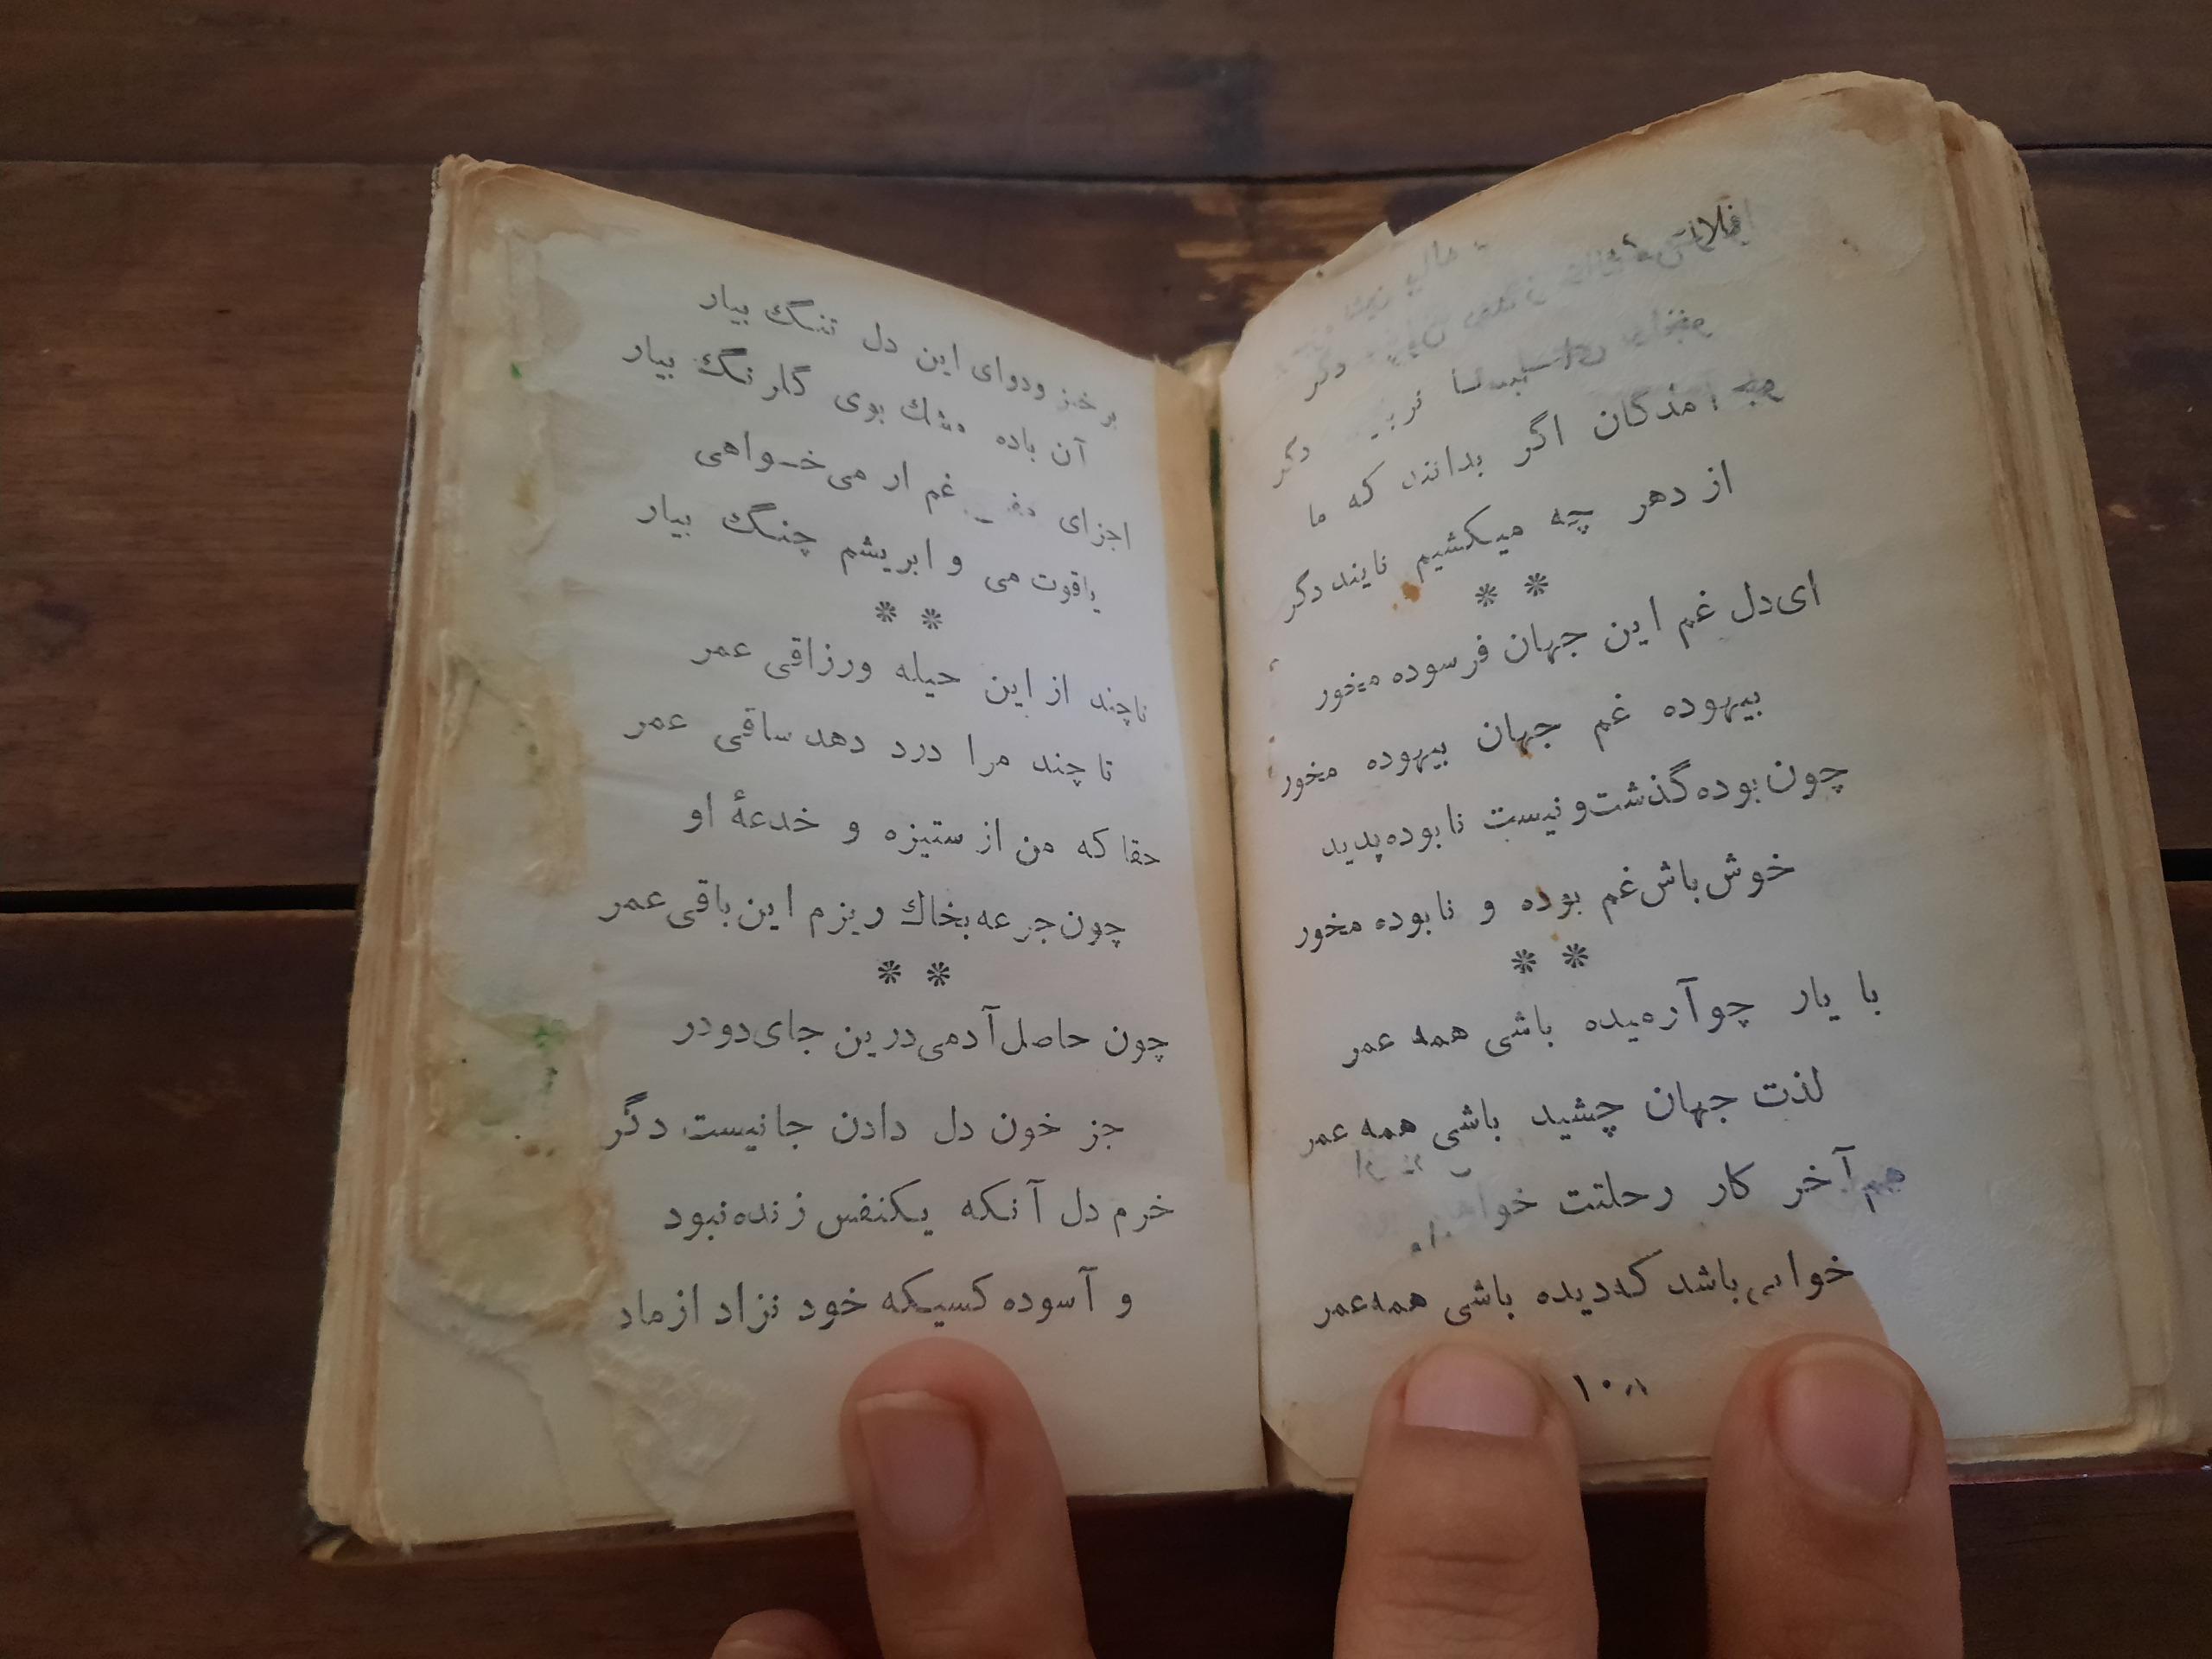 افلاك
دگر
دگر
آمدگان اگر بدانند که ما
از دهر چه میکشیم نایند دگر
* *
ای‌دل غم این جهان فرسوده مخور
بیهوده غم جهان بیهوده مخور
چون‌بوده‌گذشت‌و نیست نابوده‌پدید
خوش‌باش‌غم بوده و نابوده مخور
* *
با یار چوآرمیده باشی همه عمر
لذت جهان چشید باشی همه عمر
هم آخر کار رحلتت
خوابی‌باشد که‌دیده باشی همه‌عمر
۱۰۸
بر خیز ودوای این دل تنگ بیار
آن باده مشك بوی گلرنگ بیار
اجزای غم ار می‌خواهی
یاقوت می و ابریشم چنگ بیار
* *
تاچند از این حیله ورزاقی عمر
تا چند مرا درد دهد ساقی عمر
حقا که من از ستیزه و خدعهٔ او
چون‌جرعه‌بخاك ریزم این‌باقی‌عمر
* *
چون حاصل‌آدمی‌درین جای‌دودر
جز خون دل دادن جانیست دگر
خرم دل آنکه یکنفس زنده‌نبود
و آسوده کسیکه خود نزاد ازماد